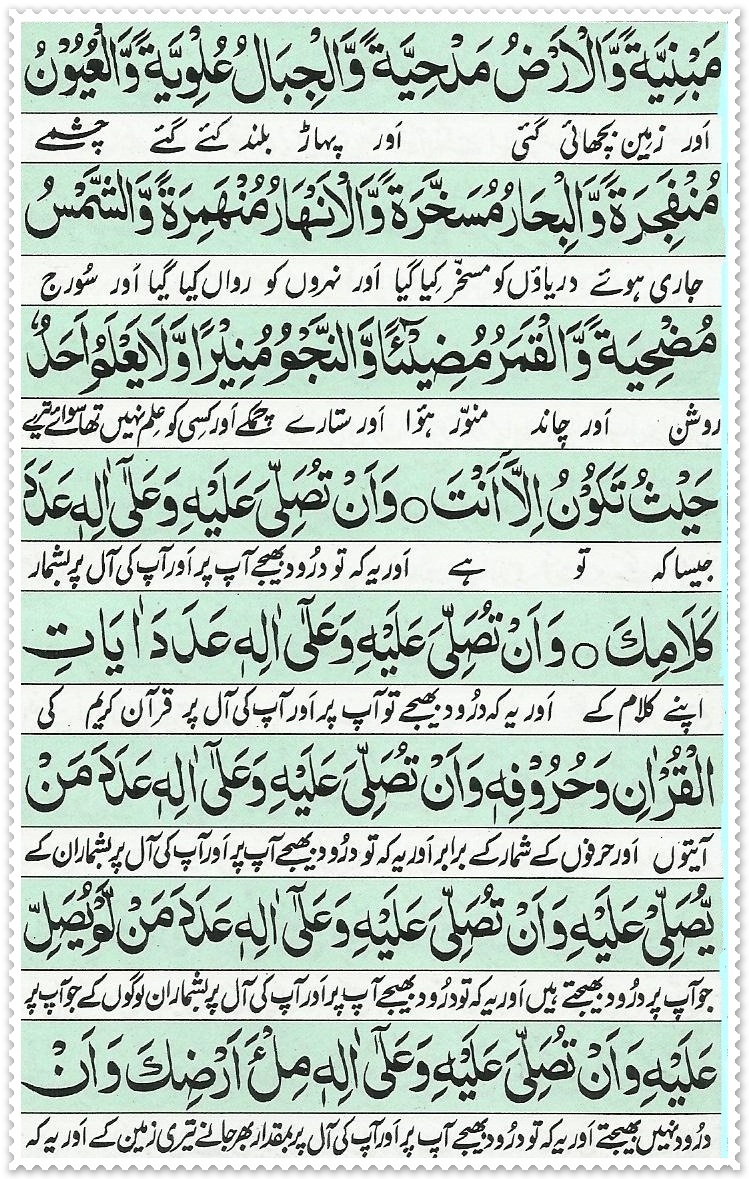 مَبْنِيَّةً وَّالْاَرْضُ مَدْحِيَّةً وَّالْجِبَالُ عُلْوِيَّةً وَّالْعُيُوْنُ
اَور زمین بچھائی گئی اَور پہاڑ بلند کئے گئے چشمے
مُنْفَجِرَةً وَّالْبِحَارُ مُسَخَّرَةً وَّالْاَنْهَارُ مُنْهَمِرَةً وَّالشَّمْسُ
جاری ہوئے دریاؤں کو مسخّر کِیا گیا اَور نہروں کو رواں کیا گیا اَور سُورج
مُضْحِيَةً وَّالْقَمَرُ مُضِيْٓئًا وَّالنَّجْوُ مُنِيْرًا وَّلَا يَعْلَمُ اَحَدٌ
روشن اَور چاند منوّر ہؤا اَور ستارے چمکے اَور کِسی کو عِلم نہیں تھا سوائے تیرے
حَيْثُ تَكُوْنُ اِلَّآ اَنْتَ ○ وَاَنْ تُصَلِّىَ عَلَيْهِ وَعَلٰٓى اٰلِهٖ عَدَدَ
جیسا کہ تو ہے اَور یہ کہ تو درُود بھیجے آپ پر اَور آپ کی آل پر بشمار
كَلَامِكَ ○ وَاَنْ تُصَلِّىَ عَلَيْهِ وَعَلٰٓى اٰلِهٖ عَدَدَ اٰيَاتِ
اپنے کلام کے اَور یہ کہ درُود بھیجے تو آپ پر اَور آپ کی آل پر قرآن کریم کی
الْقُرْاٰنِ وَحُرُوْفِهٖ وَاَنْ تُصَلِّىَ عَلَيْهِ وَعَلٰٓى اٰلِهٖ عَدَدَ مَنْ
آیتوں اَور حرفوں کے شمار کے برابر اَور یہ کہ تو درُود بھیجے آپ پر اَور آپ کی آل پر بشمار ان کے
يُّصَلِّىْ عَلَيْهِ وَاَنْ تُصَلِّىَ عَلَيْهِ وَعَلٰٓى اٰلِهٖ عَدَدَ مَنْ لَّوْ يُصَلِّ
جو آپ پر درُود بھیجتے ہیں اَور یہ کہ تو درُود بھیجے آپ پر اَور آپ کی آل پر بشمار ان لوگوں کے جو آپ پر
عَلَيْهِ وَاَنْ تُصَلِّىَ عَلَيْهِ وَعَلٰٓى اٰلِهٖ مِلْءَ اَرْضِكَ وَاَنْ
درُود نہیں بھیجتے اَور یہ کہ تو درُود بھیجے آپ پر اَور آپ کی آل پر بمقدار بھر جانے تیری زمین کے اَور یہ کہ